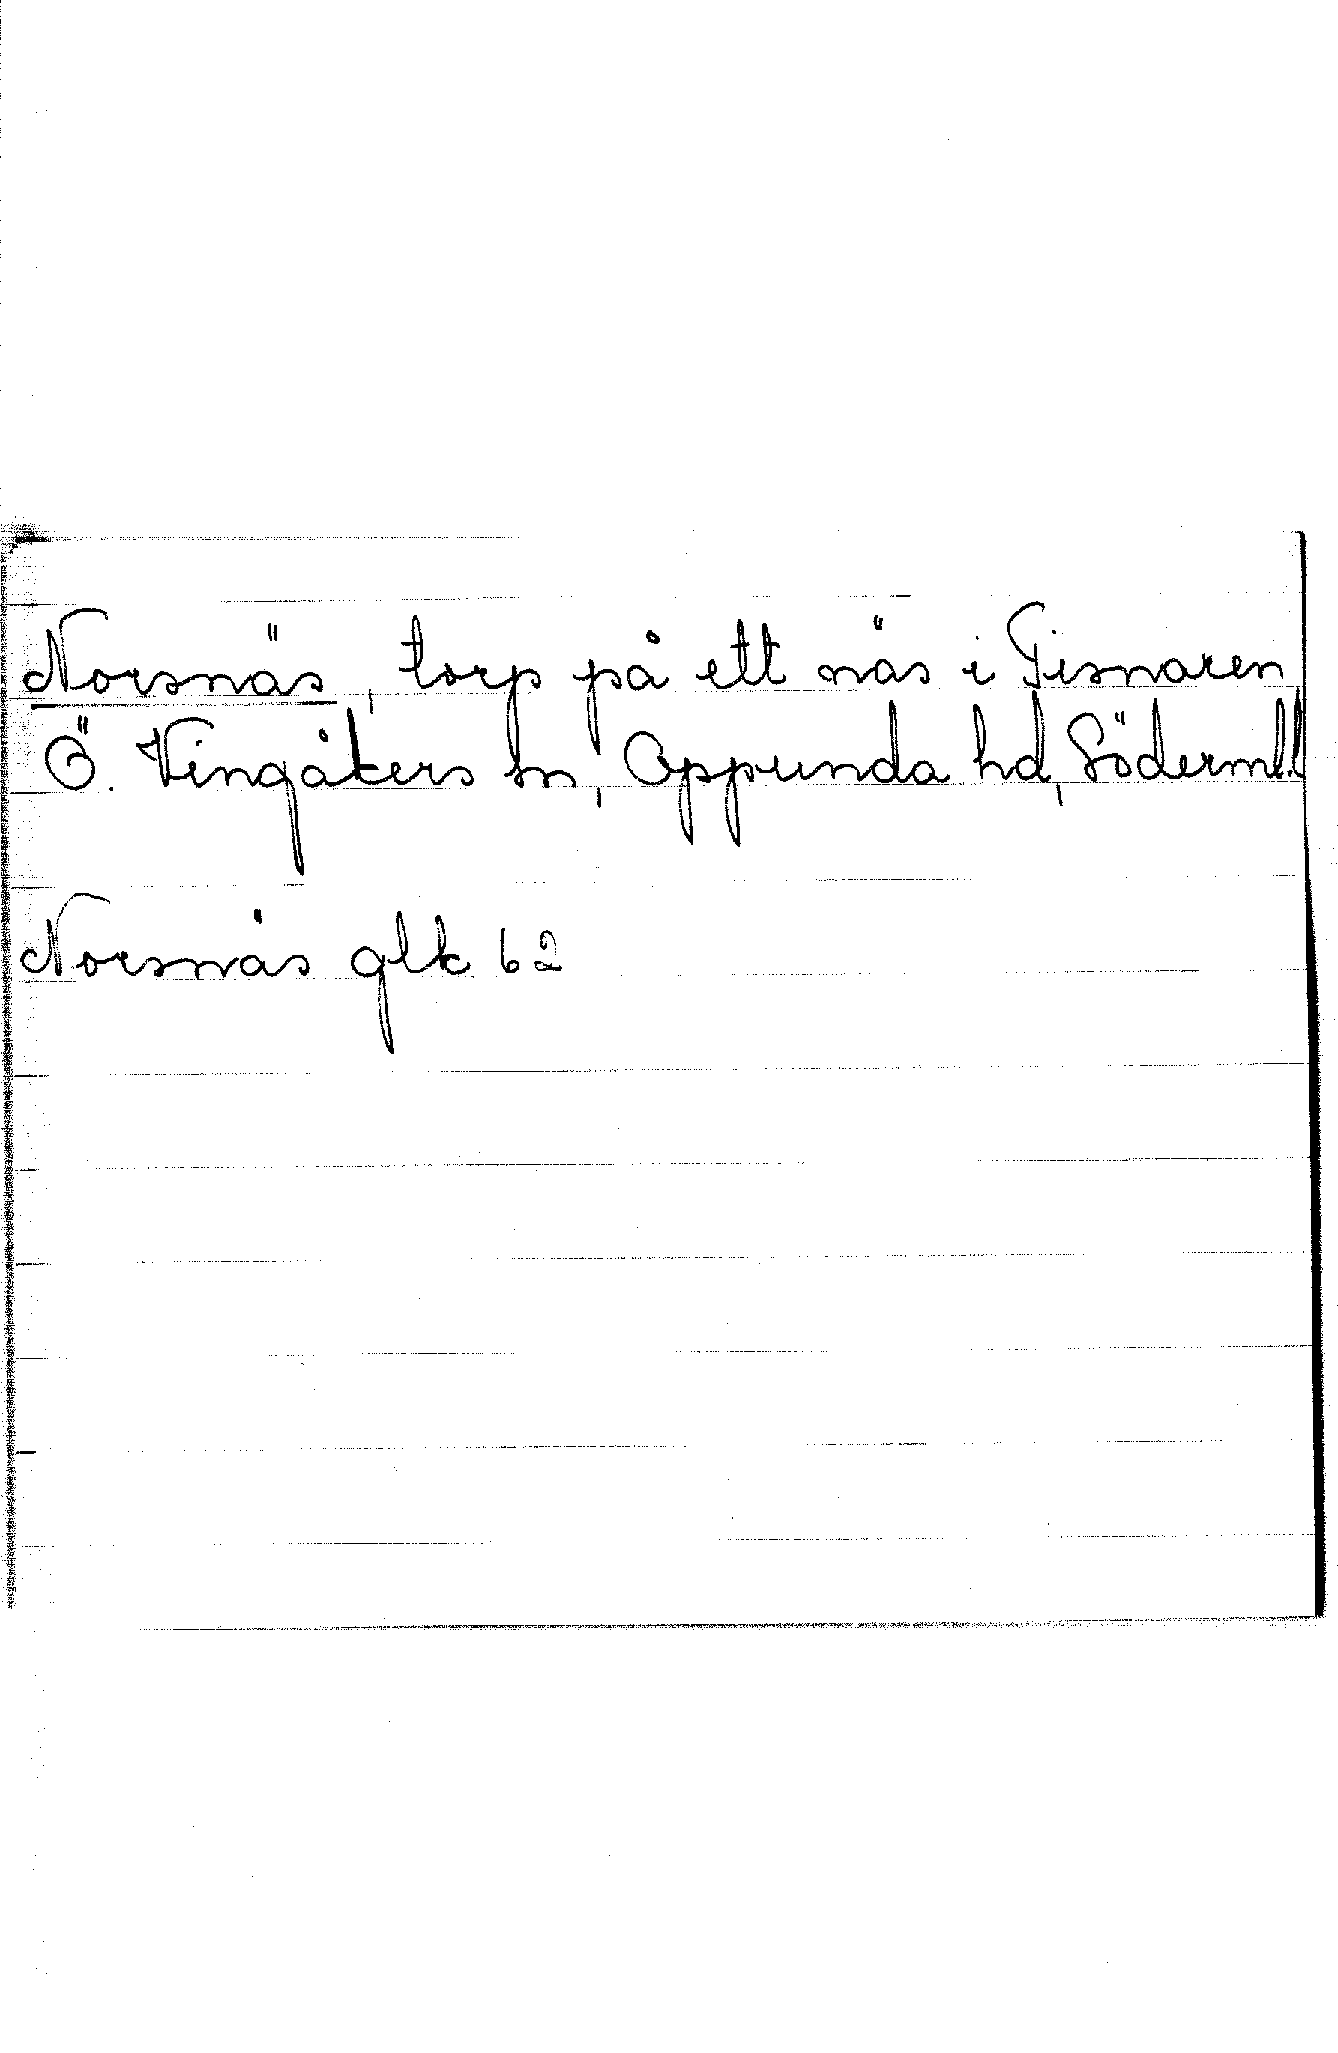 Norsnäs, torp på ett näs i Tisnaren
Ö. Vingåkers sn, Oppunda hd, Söderml.l
Norsnäs glk 62